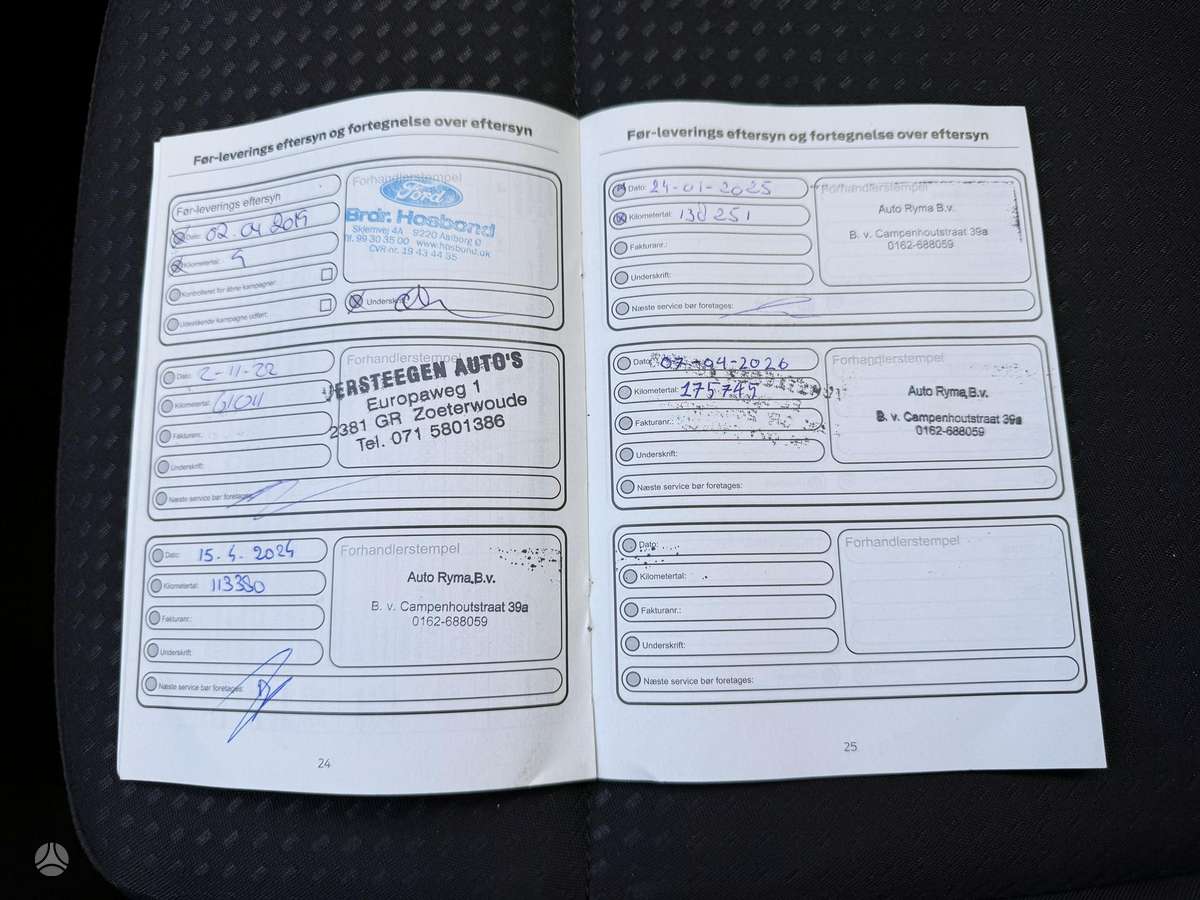 Før-leverings eftersyn og fortegnelse over eftersyn
Før-leverings eftersyn
Dato: 02.04 2019
Kilometertal:
Kontrolleret for åbne kampagner:
Udestående kampagne udført:
Forhandlerstempel
Ford
Brdr. Hosbond
Skjernvej 4A 9220 Aalborg Ø
Tlf. 99 30 35 00 www.hosbond.dk
CVR-nr. 19 43 44 35
Underskrift:
Dato: 2-11-22
Kilometertal:
Fakturanr.:
Underskrift:
Næste service bør foretages:
Forhandlerstempel
VERSTEEGEN AUTO'S
Europaweg 1
2381 GR Zoeterwoude
Tel. 071 5801386
Dato: 15.4.2024
Kilometertal: 113330
Fakturanr.:
Underskrift:
Næste service bør foretages:
Forhandlerstempel
Auto Ryma B.v.
B. v. Campenhoutstraat 39a
0162-688059
24
Før-leverings eftersyn og fortegnelse over eftersyn
Dato: 24-01-2025
Kilometertal: 138251
Fakturanr.:
Underskrift:
Næste service bør foretages:
Forhandlerstempel
Auto Ryma B.v.
B. v. Campenhoutstraat 39a
0162-688059
Dato: 07-04-2026
Kilometertal: 175745
Fakturanr.:
Underskrift:
Næste service bør foretages:
Forhandlerstempel
Auto Ryma B.v.
B. v. Campenhoutstraat 39a
0162-688059
Dato:
Kilometertal:
Fakturanr.:
Underskrift:
Næste service bør foretages:
Forhandlerstempel
25